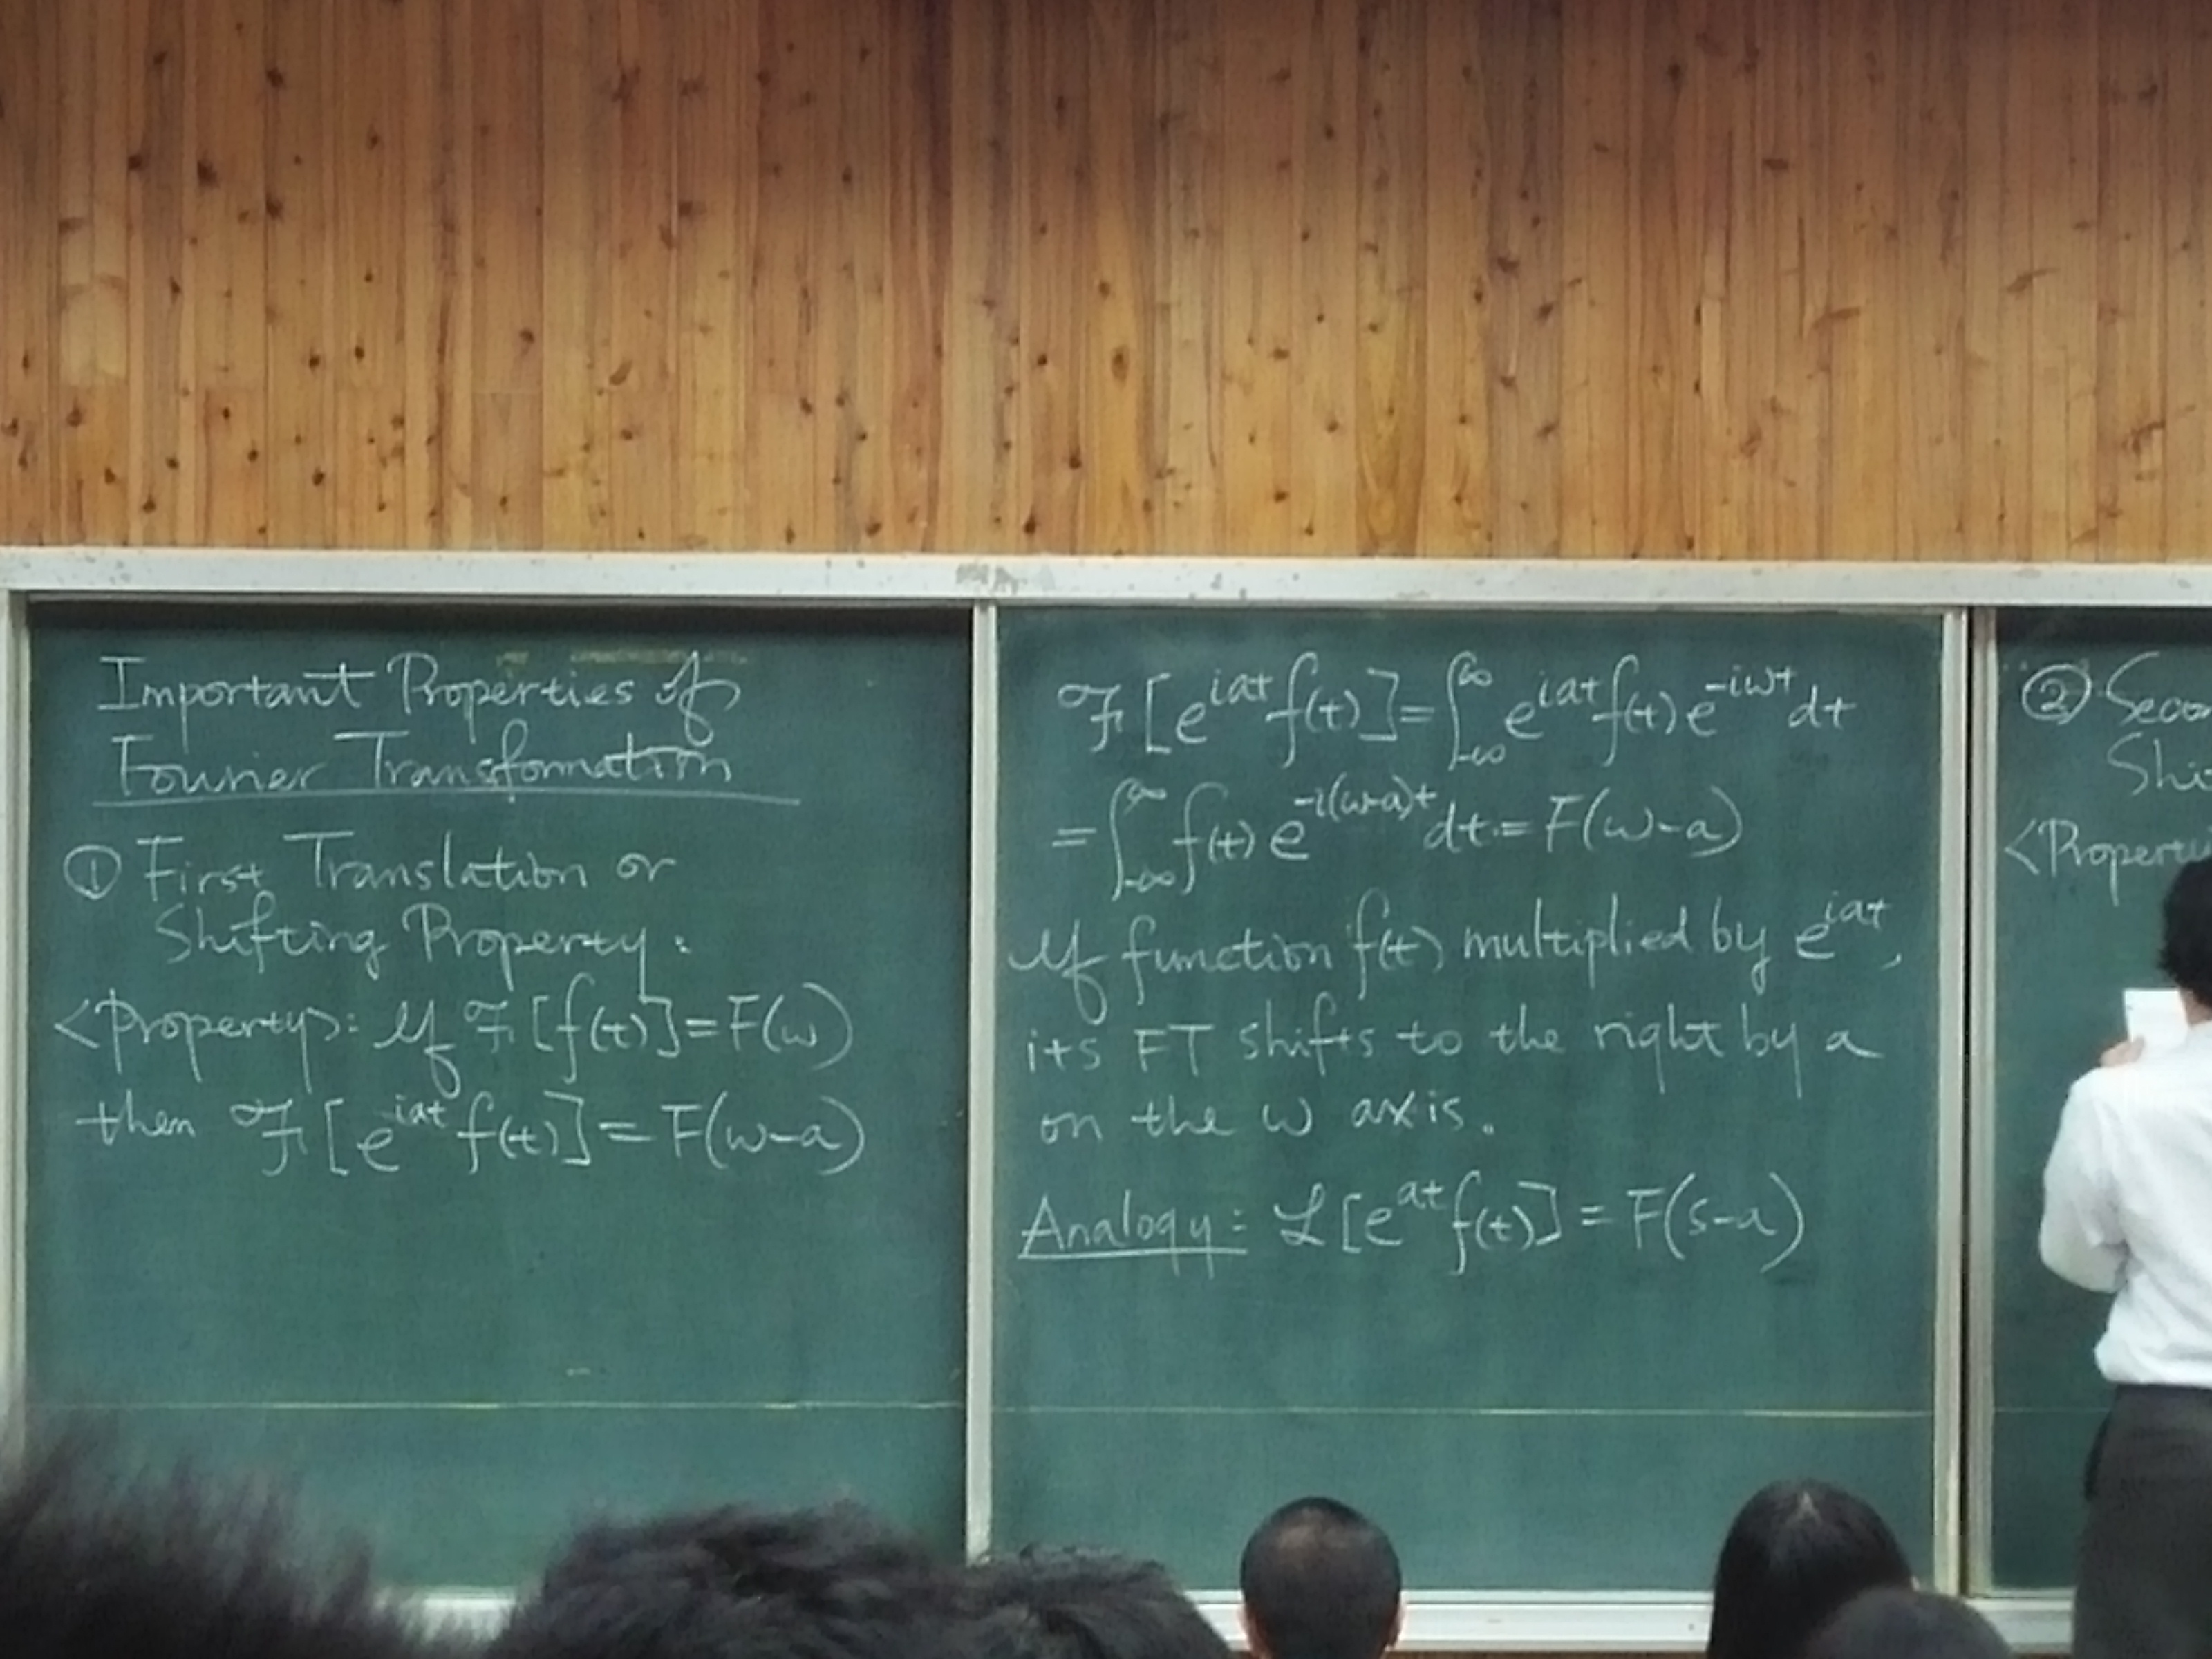 Important Properties of
Fourier Transformation
① First Translation or
Shifting Property:
<Property>: If ℱ[f(t)]=F(ω)
then ℱ[e^{iat}f(t)]=F(ω-a)
ℱ[e^{iat}f(t)]=∫_{-∞}^{∞} e^{iat}f(t)e^{-iωt}dt
=∫_{-∞}^{∞} f(t)e^{-i(ω-a)t}dt=F(ω-a)
If function f(t) multiplied by e^{iat},
its FT shifts to the right by a
on the ω axis.
Analogy: ℒ[e^{at}f(t)]=F(s-a)
②
<Property